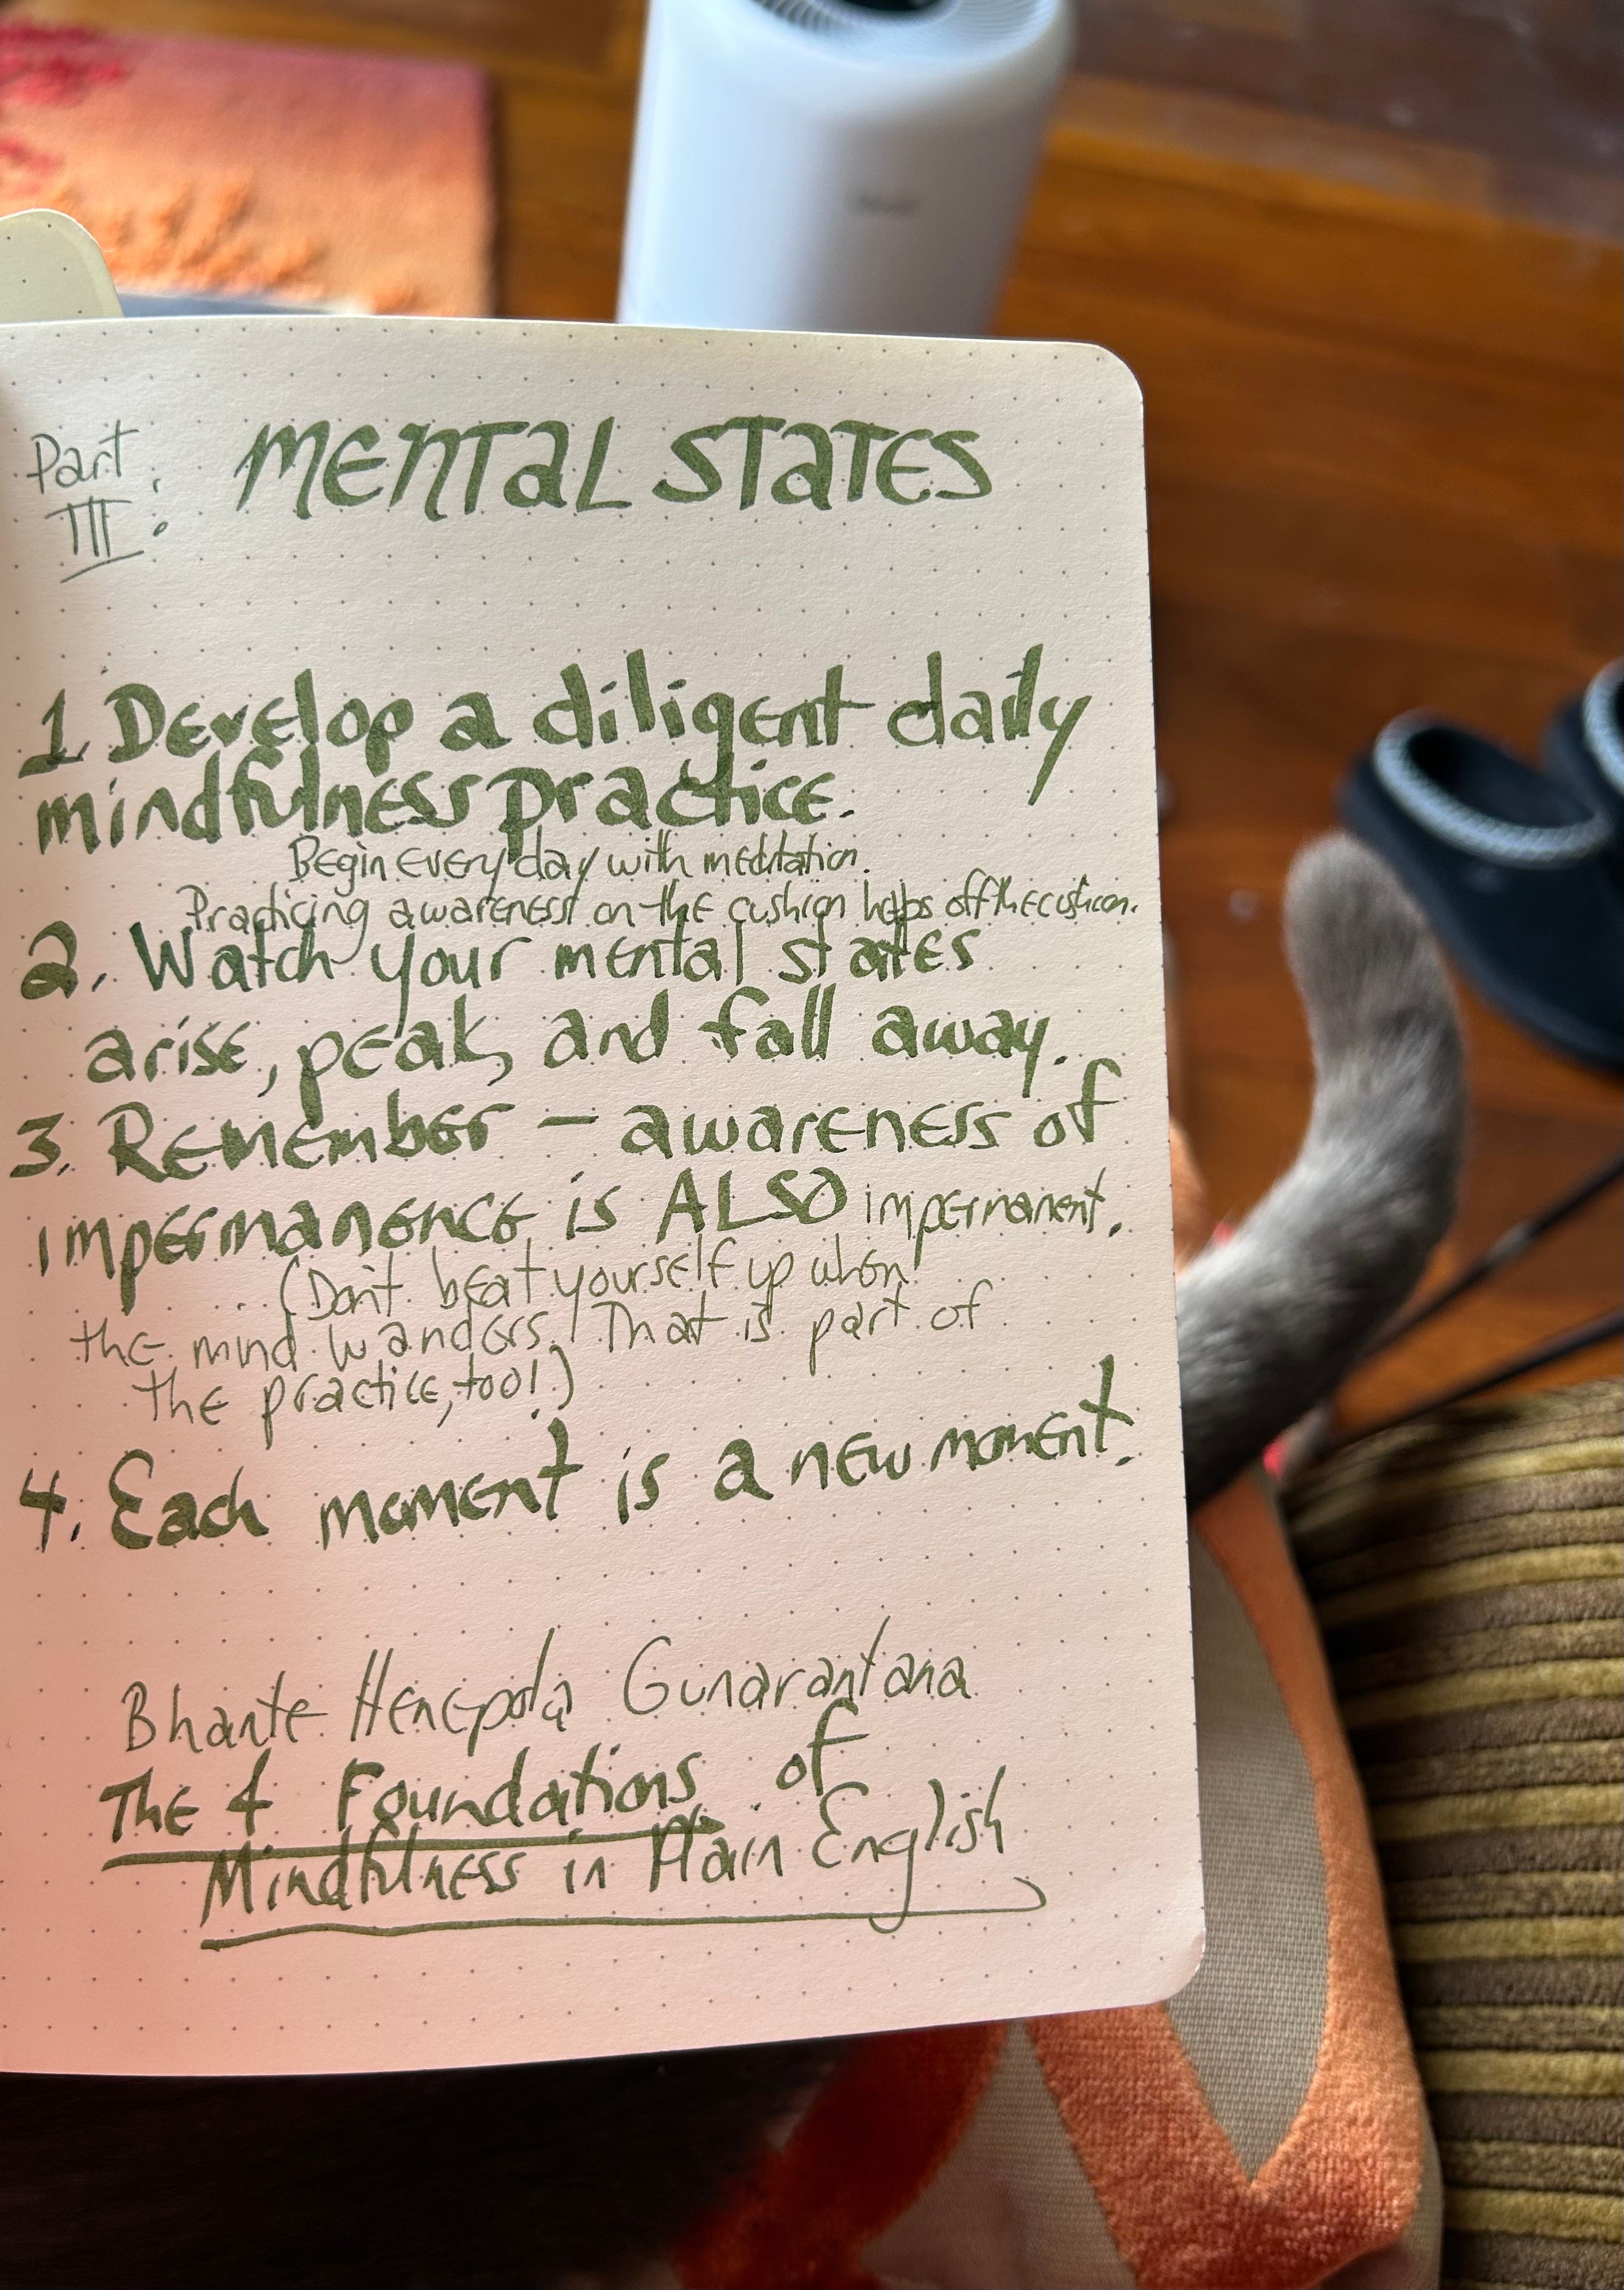 Part III: MENTAL STATES
1. Develop a diligent daily
mindfulness practice.
Begin every day with meditation.
Practicing awareness on the cushion helps off the cushion.
2. Watch your mental states
arise, peak, and fall away.
3. Remember — awareness of
impermanence is ALSO impermanent.
(Don't beat yourself up when
the mind wanders. That is part of
the practice, too!)
4. Each moment is a new moment.
Bhante Henepola Gunarantana
The 4 Foundations of
Mindfulness in Plain English